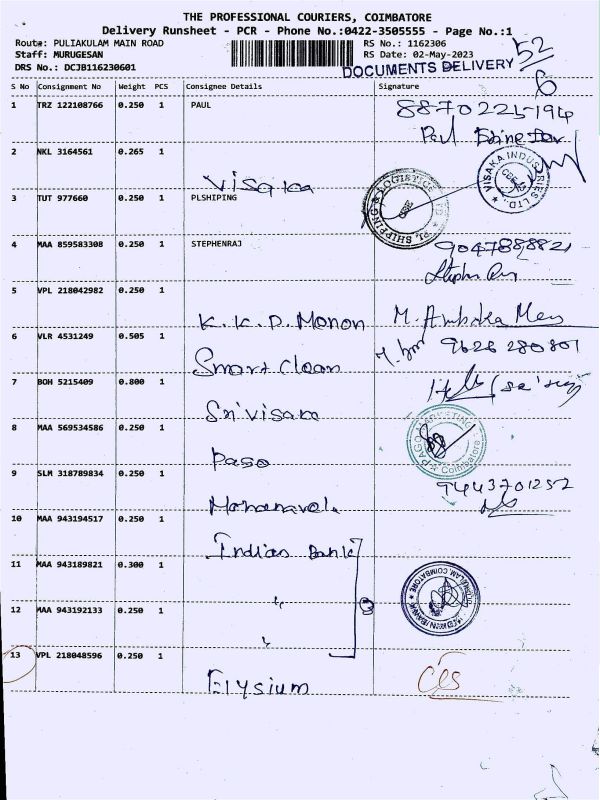 THE PROFESSIONAL COURIERS, COIMBATORE
Delivery Runsheet - PCR - Phone No.:0422-3505555 - Page No.:1
Route: PULIAKULAM MAIN ROAD RS No.: 1162306
Staff: MURUGESAN RS Date: 02-May-2023 52
DRS No.: DCJB116230601 DOCUMENTS DELIVERY
S No Consignment No Weight PCS Consignee Details Signature 6
1 TRZ 122108766 0.250 1 PAUL
Paul
2 NKL 3164561 0.265 1 Visaka VISAKA INDUSTRIES LTD.
3 TUT 977660 0.250 1 PLSHIPING PL SHIPPING & LOGISTICS
4 MAA 859583308 0.250 1 STEPHENRAJ
5 VPL 218042982 0.250 1 K.K.P. Monon
6 VLR 4531249 0.505 1 Smart Clean 9626280801
7 BOH 5215409 0.800 1 Sri Visara
8 MAA 569534586 0.250 1 Paso MARKETING Coimbatore
9 SLM 318789834 0.250 1 9443701252
10 MAA 943194517 0.250 1 Indian Bank
11 MAA 943189821 0.300 1 "
12 MAA 943192133 0.250 1 "
13 VPL 218048596 0.250 1 Elysium